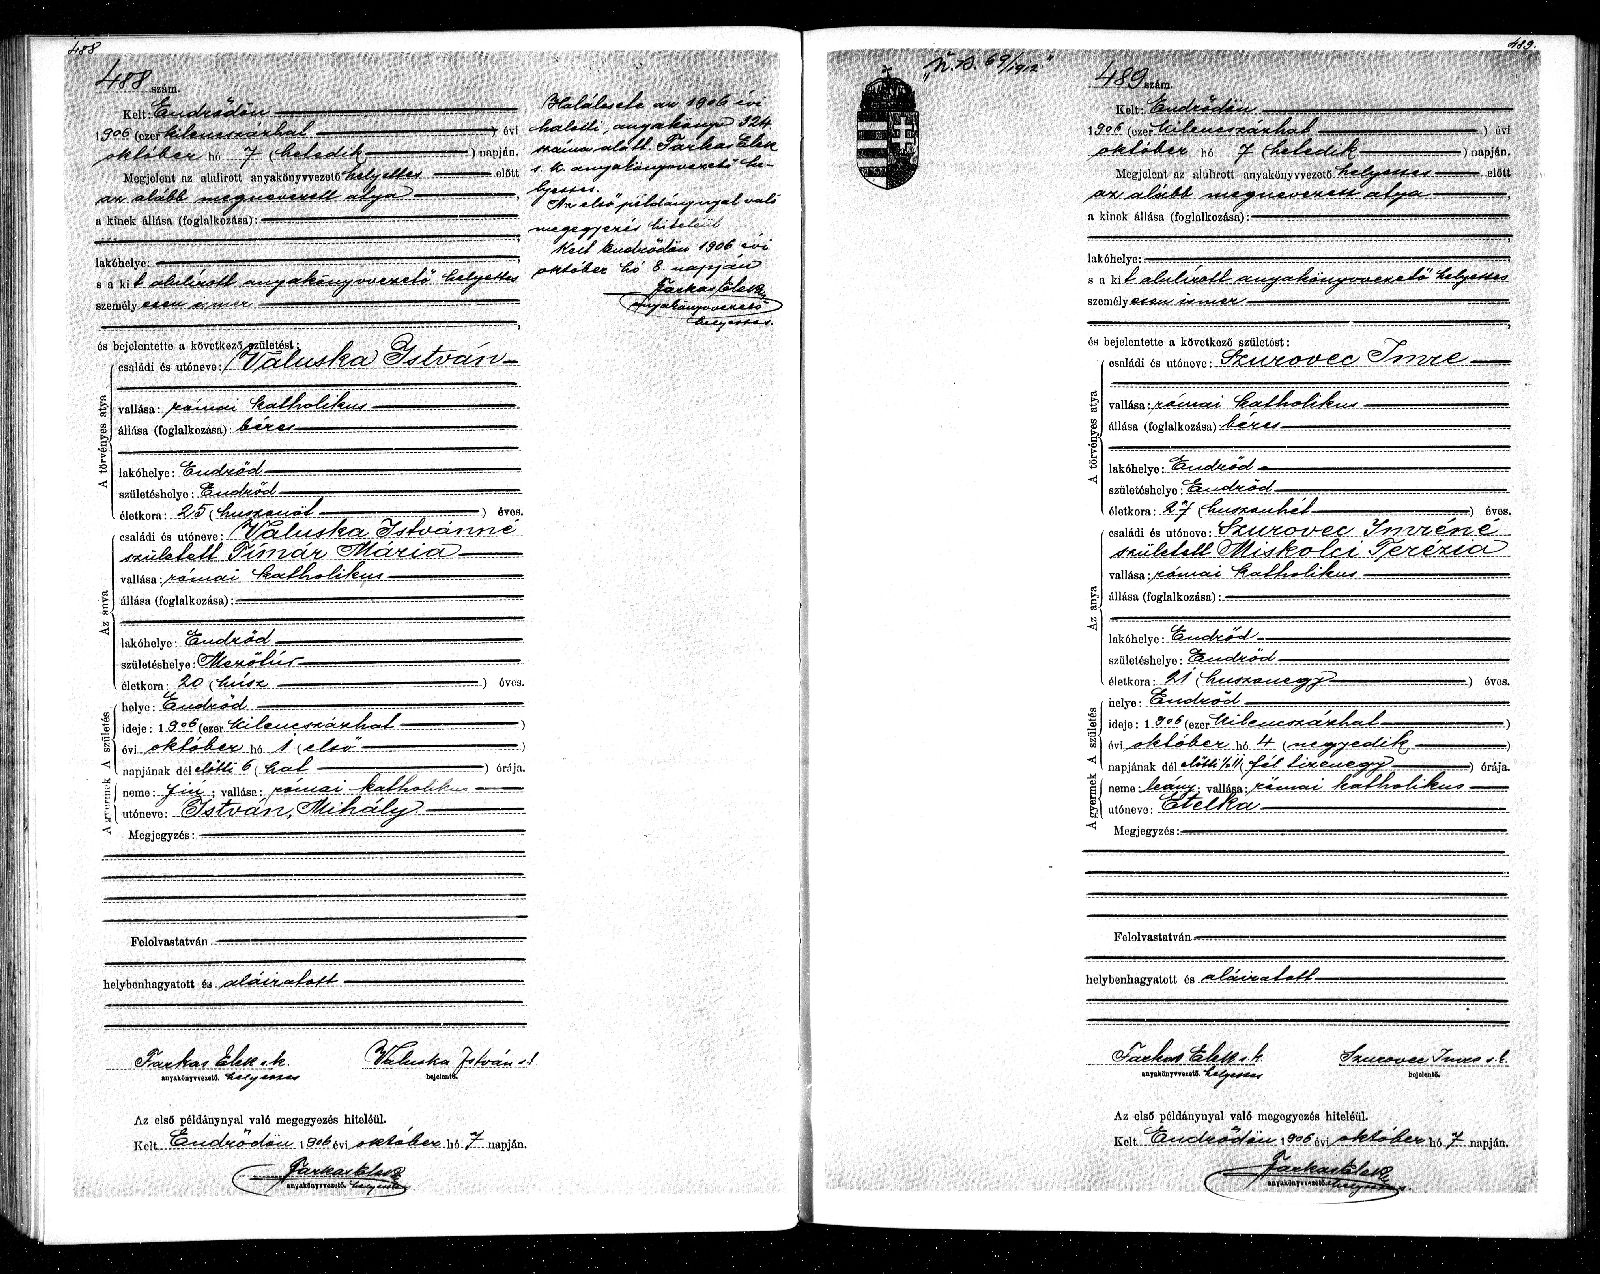 488
488 szám.
Kelt: Endrődön
1906 (ezer kilenczszázhat) évi
október hó 7 (hetedik) napján.
Megjelent az alulirott anyakönyvvezető helyettes előtt
az alább megnevezett atya,
a kinek állása (foglalkozása):
lakóhelye:
s a kit alulírott anyakönyvvezető helyettes
személyesen ismer
és bejelentette a következő születést:
A törvényes atya
családi és utóneve: Valuska István
vallása: római katholikus
állása (foglalkozása): béres
lakóhelye: Endrőd
születéshelye: Endrőd
életkora: 25 (huszonöt) éves.
Az anya
családi és utóneve: Valuska Istvánné
született Tímár Mária
vallása: római katholikus
állása (foglalkozása):
lakóhelye: Endrőd
születéshelye: Mezőtúr
életkora: 20 (húsz) éves.
A születés
helye: Endrőd
ideje: 1906 (ezer kilenczszázhat)
évi október hó 1 (első)
napjának dél előtti 6 (hat) órája.
A gyermek
neme: fiú; vallása: római katholikus
utóneve: István, Mihály
Megjegyzés:
Felolvastatván
helybenhagyatott és aláiratott
Farkas Elek s.k. Valuska István s.k.
anyakönyvvezető. helyettes bejelentő.
Az első példánynyal való megegyezés hiteléül.
Kelt Endrődön 1906 évi október hó 7 napján.
Farkas Elek
anyakönyvvezető. helyettes
Halálesete az 1906 évi
halotti anyakönyv 324
száma alatt. Farkas Elek
s. k. anyakönyvvezető he-
lyettes.
Az első példánynyal való
megegyezés hiteléül
Kelt Endrődön 1906 évi
október hó 8. napján
Farkas Elek
anyakönyvvezető
helyettes.
489.
"N. B. 69/1912"
489 szám.
Kelt: Endrődön
1906 (ezer kilenczszázhat) évi
október hó 7 (hetedik) napján.
Megjelent az alulirott anyakönyvvezető helyettes előtt
az alább megnevezett atya,
a kinek állása (foglalkozása):
lakóhelye:
s a kit alulírott anyakönyvvezető helyettes
személyesen ismer
és bejelentette a következő születést:
A törvényes atya
családi és utóneve: Szurovec Imre
vallása: római katholikus
állása (foglalkozása): béres
lakóhelye: Endrőd
születéshelye: Endrőd
életkora: 27 (huszonhét) éves.
Az anya
családi és utóneve: Szurovec Imréné
született Miskolci Terézia
vallása: római katholikus
állása (foglalkozása):
lakóhelye: Endrőd
születéshelye: Endrőd
életkora: 21 (huszonegy) éves.
A születés
helye: Endrőd
ideje: 1906 (ezer kilenczszázhat)
évi október hó 4 (negyedik)
napjának dél előtti ½11 (fél tizenegy) órája.
A gyermek
neme: leány; vallása: római katholikus
utóneve: Etelka
Megjegyzés:
Felolvastatván
helybenhagyatott és aláiratott
Farkas Elek s.k. Szurovec Imre s.k.
anyakönyvvezető. helyettes bejelentő.
Az első példánynyal való megegyezés hiteléül.
Kelt Endrődön 1906 évi október hó 7 napján.
Farkas Elek
anyakönyvvezető. helyettes